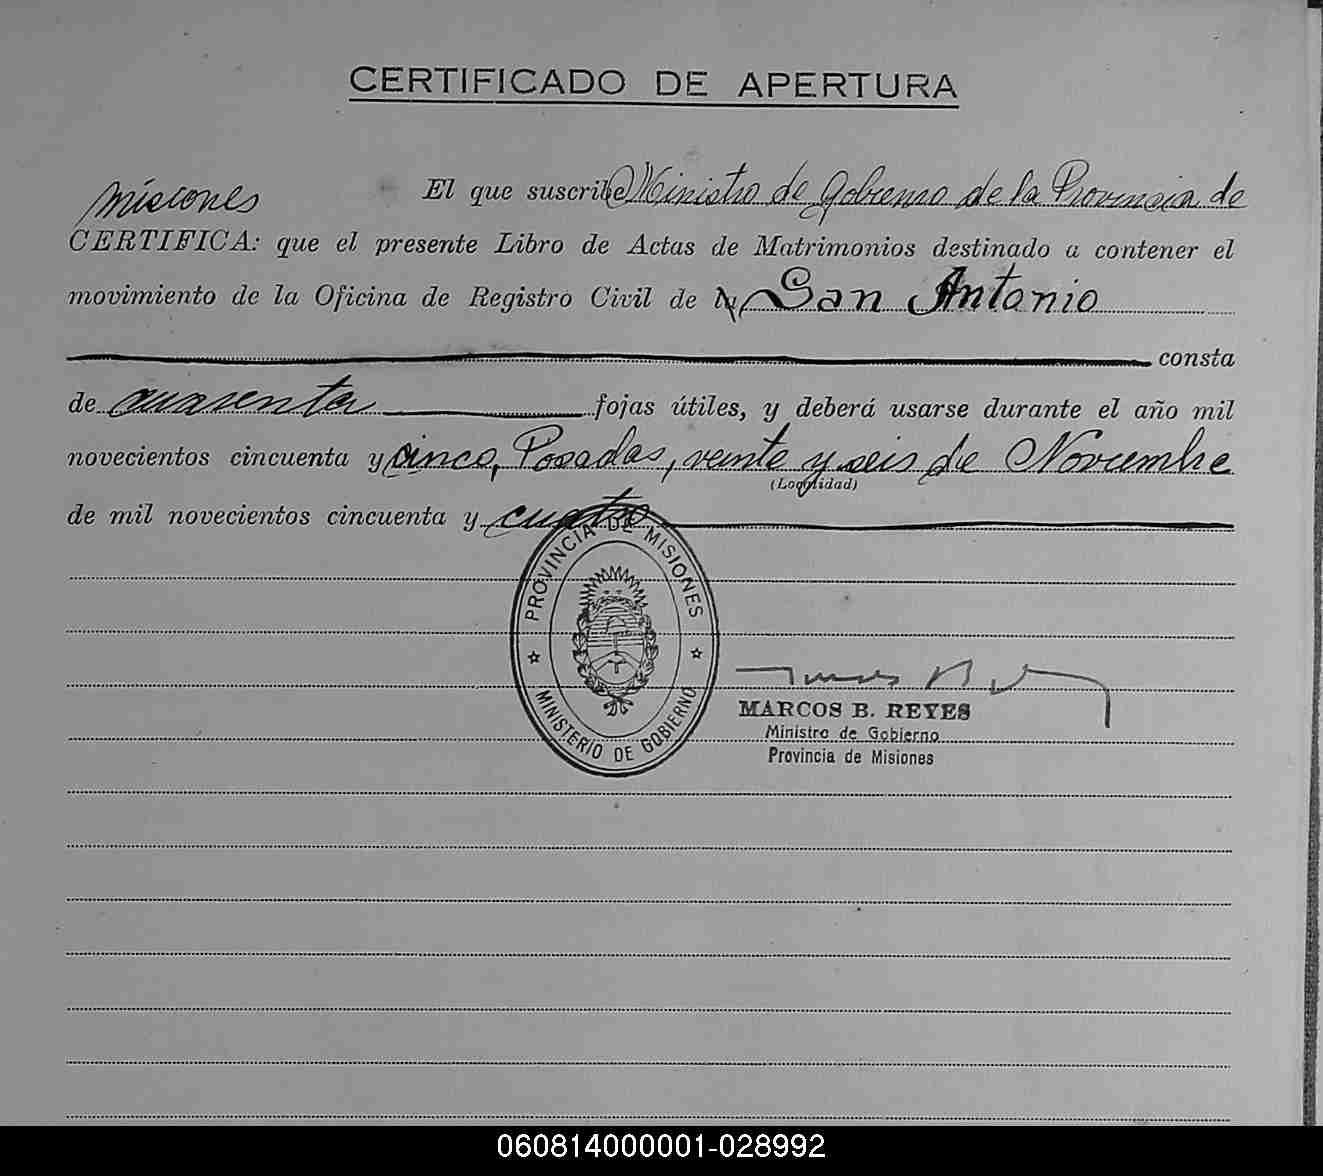 CERTIFICADO DE APERTURA
El que suscribe Ministro de Gobierno de la Provincia de
Misiones
CERTIFICA: que el presente Libro de Actas de Matrimonios destinado a contener el
movimiento de la Oficina de Registro Civil de la San Antonio
consta
de cuarenta fojas útiles, y deberá usarse durante el año mil
novecientos cincuenta y cinco, Posadas, veinte y seis de Noviembre
(Localidad)
de mil novecientos cincuenta y cuatro
PROVINCIA DE MISIONES
MINISTERIO DE GOBIERNO
MARCOS B. REYES
Ministro de Gobierno
Provincia de Misiones
060814000001-028992